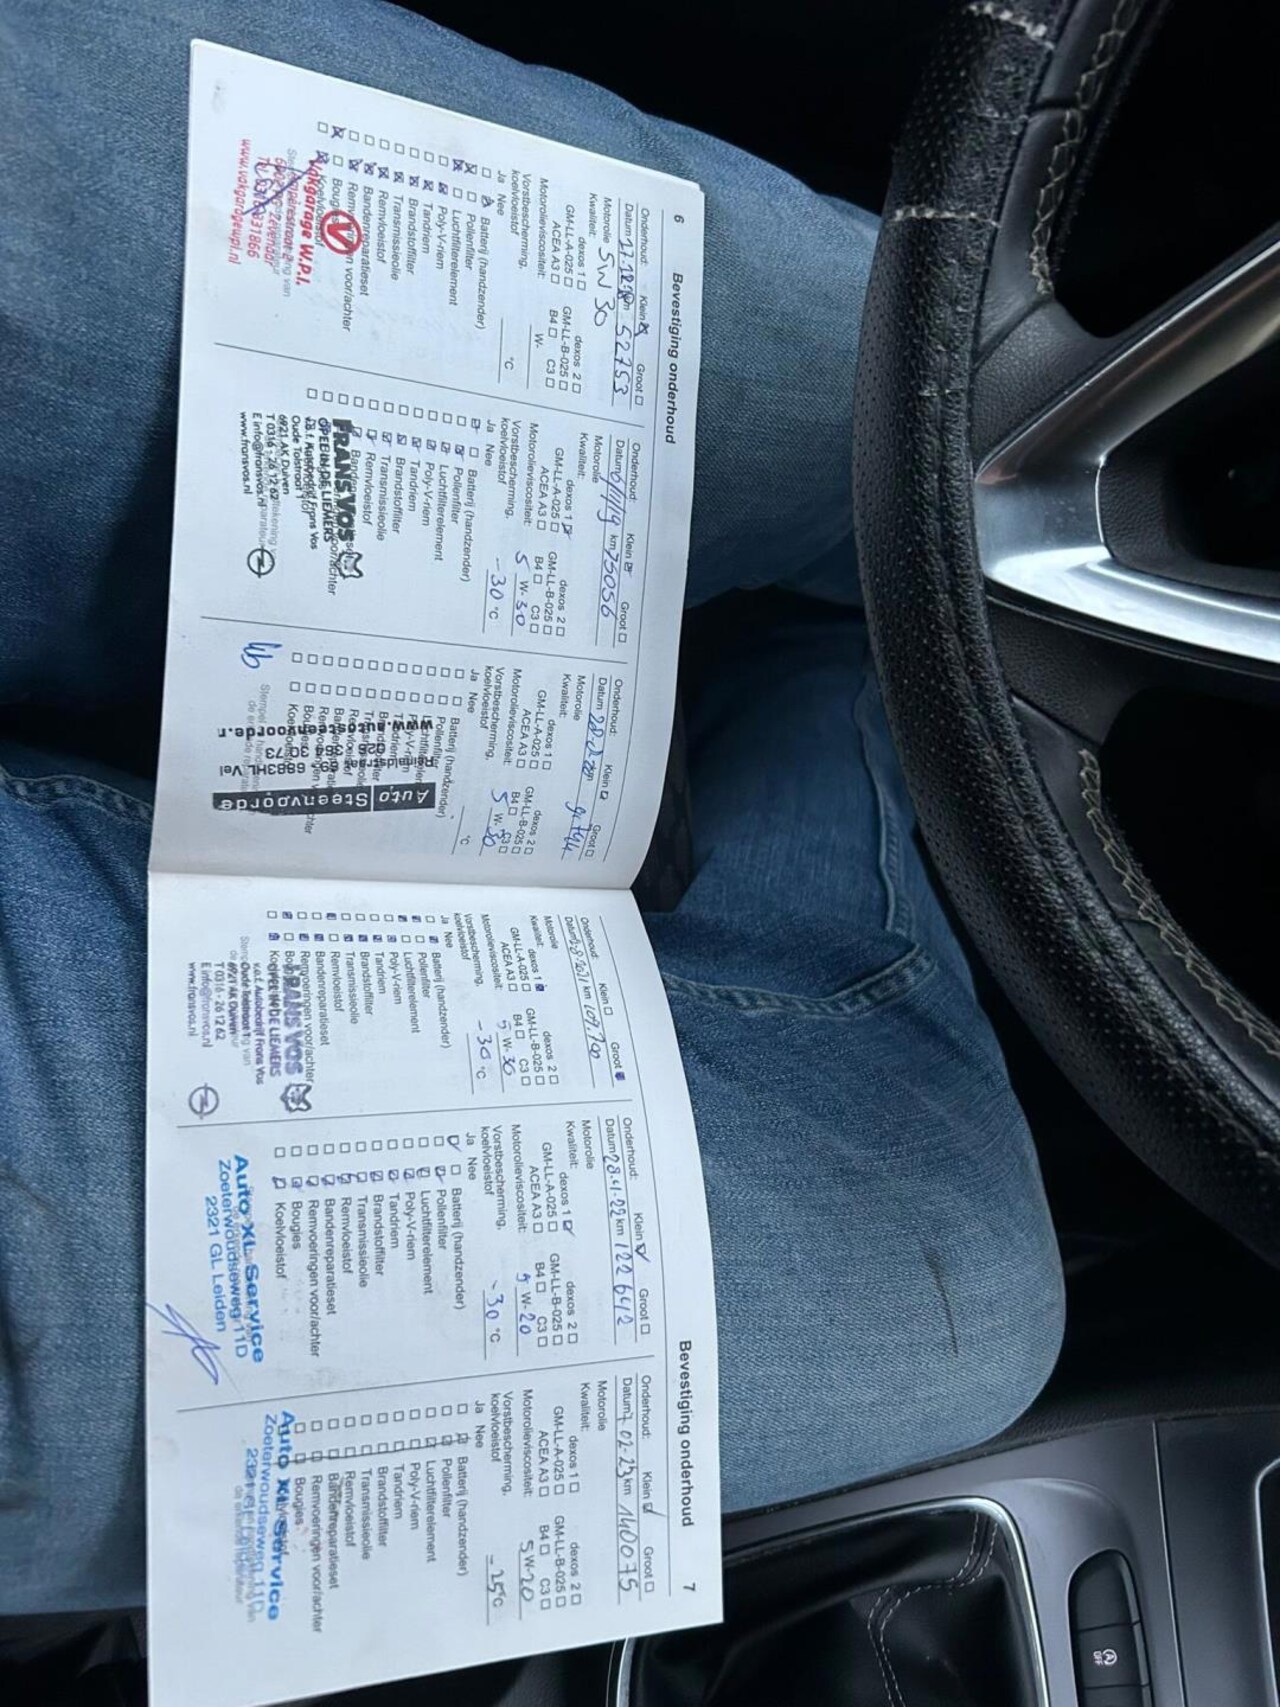 6 Bevestiging onderhoud
Onderhoud: Klein Groot
Datum 17.12.18 km 52753
Motorolie 5W30
Kwaliteit:
dexos 1 dexos 2
GM-LL-A-025 GM-LL-B-025
ACEA A3 B4 C3
Motorolieviscositeit: W-
Vorstbescherming,
koelvloeistof °C
Ja Nee
Batterij (handzender)
Pollenfilter
Luchtfilterelement
Poly-V-riem
Tandriem
Brandstoffilter
Transmissieolie
Remvloeistof
Bandenreparatieset
Remvoeringen voor/achter
Bougies
Koelvloeistof
Vakgarage W.P.I.
www.vakgaragewpi.nl
Onderhoud: Klein Groot
Datum 6/11/19 km 75056
Motorolie
Kwaliteit:
dexos 1 dexos 2
GM-LL-A-025 GM-LL-B-025
ACEA A3 B4 C3
Motorolieviscositeit: 5 W-30
Vorstbescherming,
koelvloeistof -30 °C
Ja Nee
Batterij (handzender)
Pollenfilter
Luchtfilterelement
Poly-V-riem
Tandriem
Brandstoffilter
Transmissieolie
Remvloeistof
FRANS VOS
OPEL IN DE LIEMERS
v.o.f. Autobedrijf Frans Vos
Oude Tolstraat 1
6921 AK Duiven
T 0316 - 26 12 62
E info@fransvos.nl
www.fransvos.nl
Onderhoud: Klein Groot
Datum km
Motorolie
Kwaliteit:
dexos 1 dexos 2
GM-LL-A-025 GM-LL-B-025
ACEA A3 B4 C3
Motorolieviscositeit: 5 W-30
Vorstbescherming,
koelvloeistof °C
Ja Nee
Batterij (handzender)
Pollenfilter
Auto Steenvoorde
6883HL Vel
Bevestiging onderhoud 7
Onderhoud: Klein Groot
Datum km
Motorolie
Kwaliteit:
dexos 1 dexos 2
GM-LL-A-025 GM-LL-B-025
ACEA A3 B4 C3
Motorolieviscositeit: 5 W-30
Vorstbescherming,
koelvloeistof -30 °C
Ja Nee
Batterij (handzender)
Pollenfilter
Luchtfilterelement
Poly-V-riem
Tandriem
Brandstoffilter
Transmissieolie
Remvloeistof
Bandenreparatieset
Remvoeringen voor/achter
FRANS VOS
OPEL IN DE LIEMERS
v.o.f. Autobedrijf Frans Vos
Oude Tolstraat 1
6921 AK Duiven
T 0316 - 26 12 62
E info@fransvos.nl
www.fransvos.nl
Onderhoud: Klein Groot
Datum 28.4.22 km 122642
Motorolie
Kwaliteit:
dexos 1 dexos 2
GM-LL-A-025 GM-LL-B-025
ACEA A3 B4 C3
Motorolieviscositeit: 5 W-20
Vorstbescherming,
koelvloeistof -30 °C
Ja Nee
Batterij (handzender)
Pollenfilter
Luchtfilterelement
Poly-V-riem
Tandriem
Brandstoffilter
Transmissieolie
Remvloeistof
Bandenreparatieset
Remvoeringen voor/achter
Bougies
Koelvloeistof
Auto XL Service
Zoeterwoudseweg 11D
2321 GL Leiden
Onderhoud: Klein Groot
Datum 7 02-23 km 140075
Motorolie
Kwaliteit:
dexos 1 dexos 2
GM-LL-A-025 GM-LL-B-025
ACEA A3 B4 C3
Motorolieviscositeit: 5 W-20
Vorstbescherming,
koelvloeistof -25 °C
Ja Nee
Batterij (handzender)
Pollenfilter
Luchtfilterelement
Poly-V-riem
Tandriem
Brandstoffilter
Transmissieolie
Remvloeistof
Bandenreparatieset
Remvoeringen voor/achter
Bougies
Auto XL Service
Zoeterwoudseweg 11D
A OFF